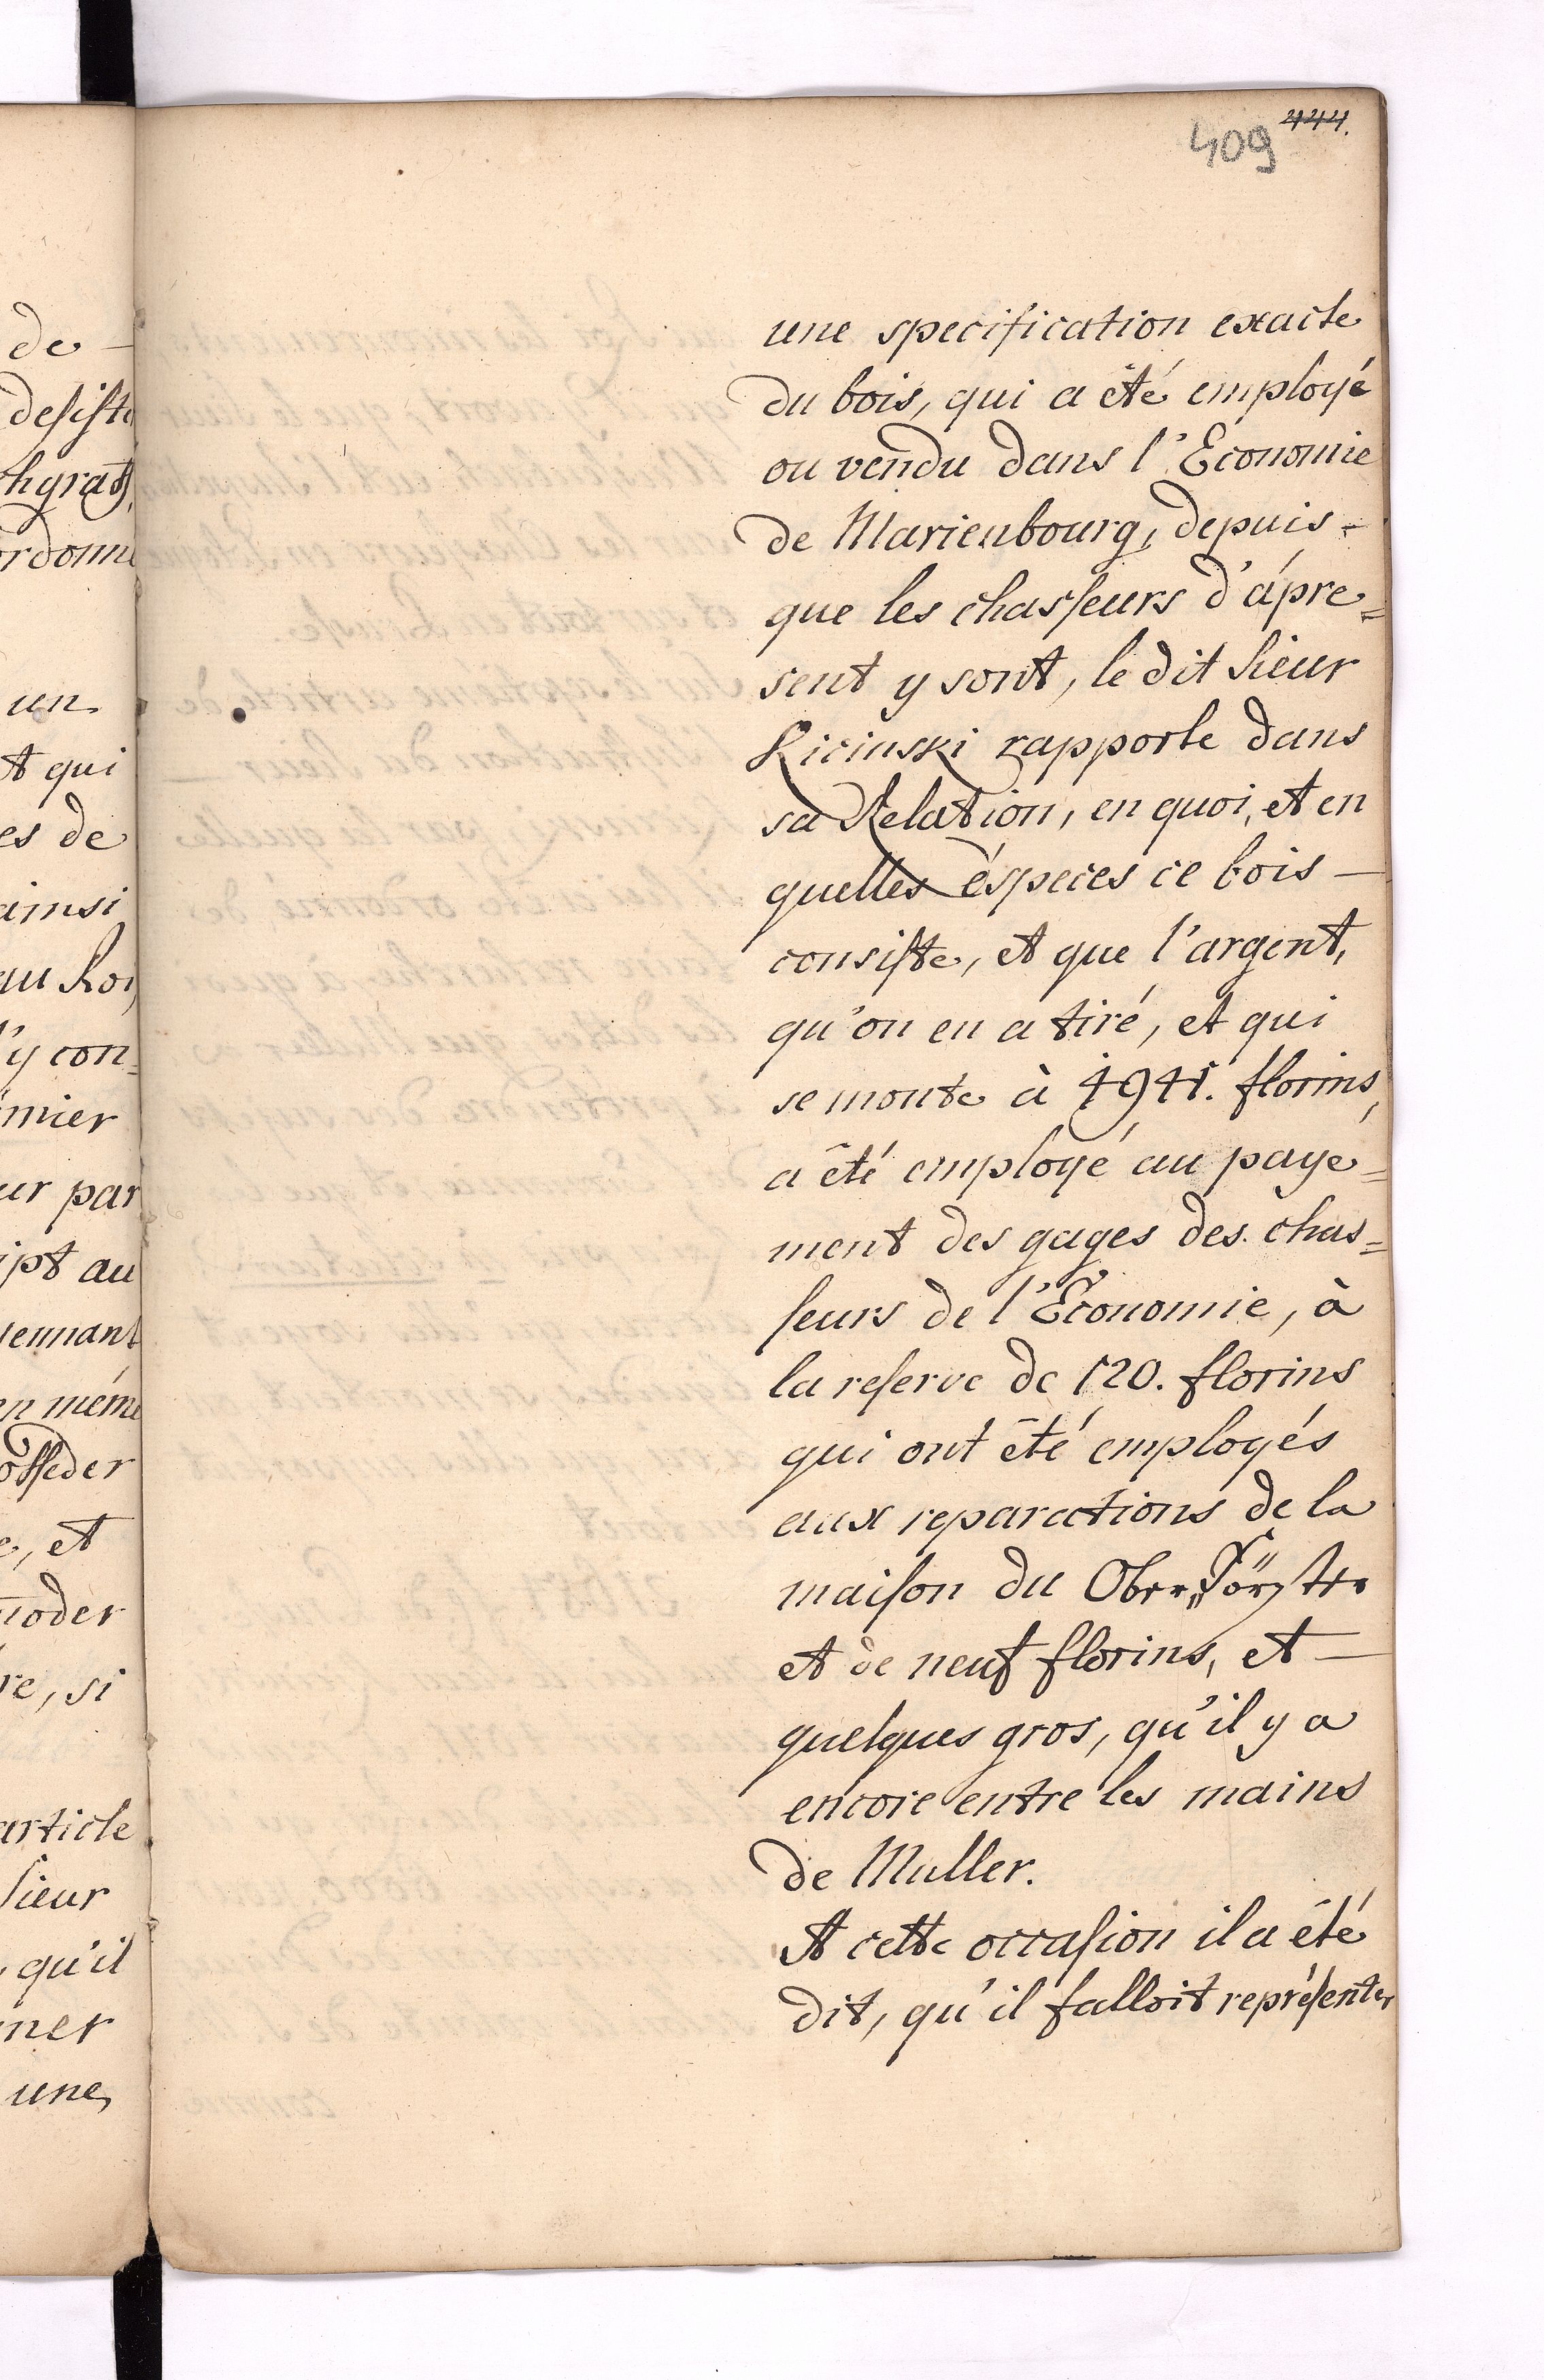 409 444.
une specification exacte
du bois, qui a été employé
ou vendu dans l'Economie
de Marienbourg, depuis-
que les chasseurs d'ápre=
sent y sont, le dit Sieur
Licinski rapporte dans
sa Relation, en quoi, et en
quelles éspeces ce bois —
consiste, et que l'argent,
qu'on en a tiré, et qui
se monte à florins,
a été employé au paye=
ment des gages des chas=
seurs de l'Economie, à
la reserve de 120. florins
qui ont été employés
aux reparations de la
maison du Ober„Förster
et de neuf florins, et —
quelques gros, qu'il y a
encore entre les mains
de Muller.
A cette occasion il a été
dit, qu'il falloit représenter
de —
desiste
ordonne
un
et qui
es de
ainsi
au Roi,
l'y con=
mier
ur par
ipt au
ennant
en méme
osseder
e, et
moder
re, si
article
Sieur
, qu'il
ner
une,